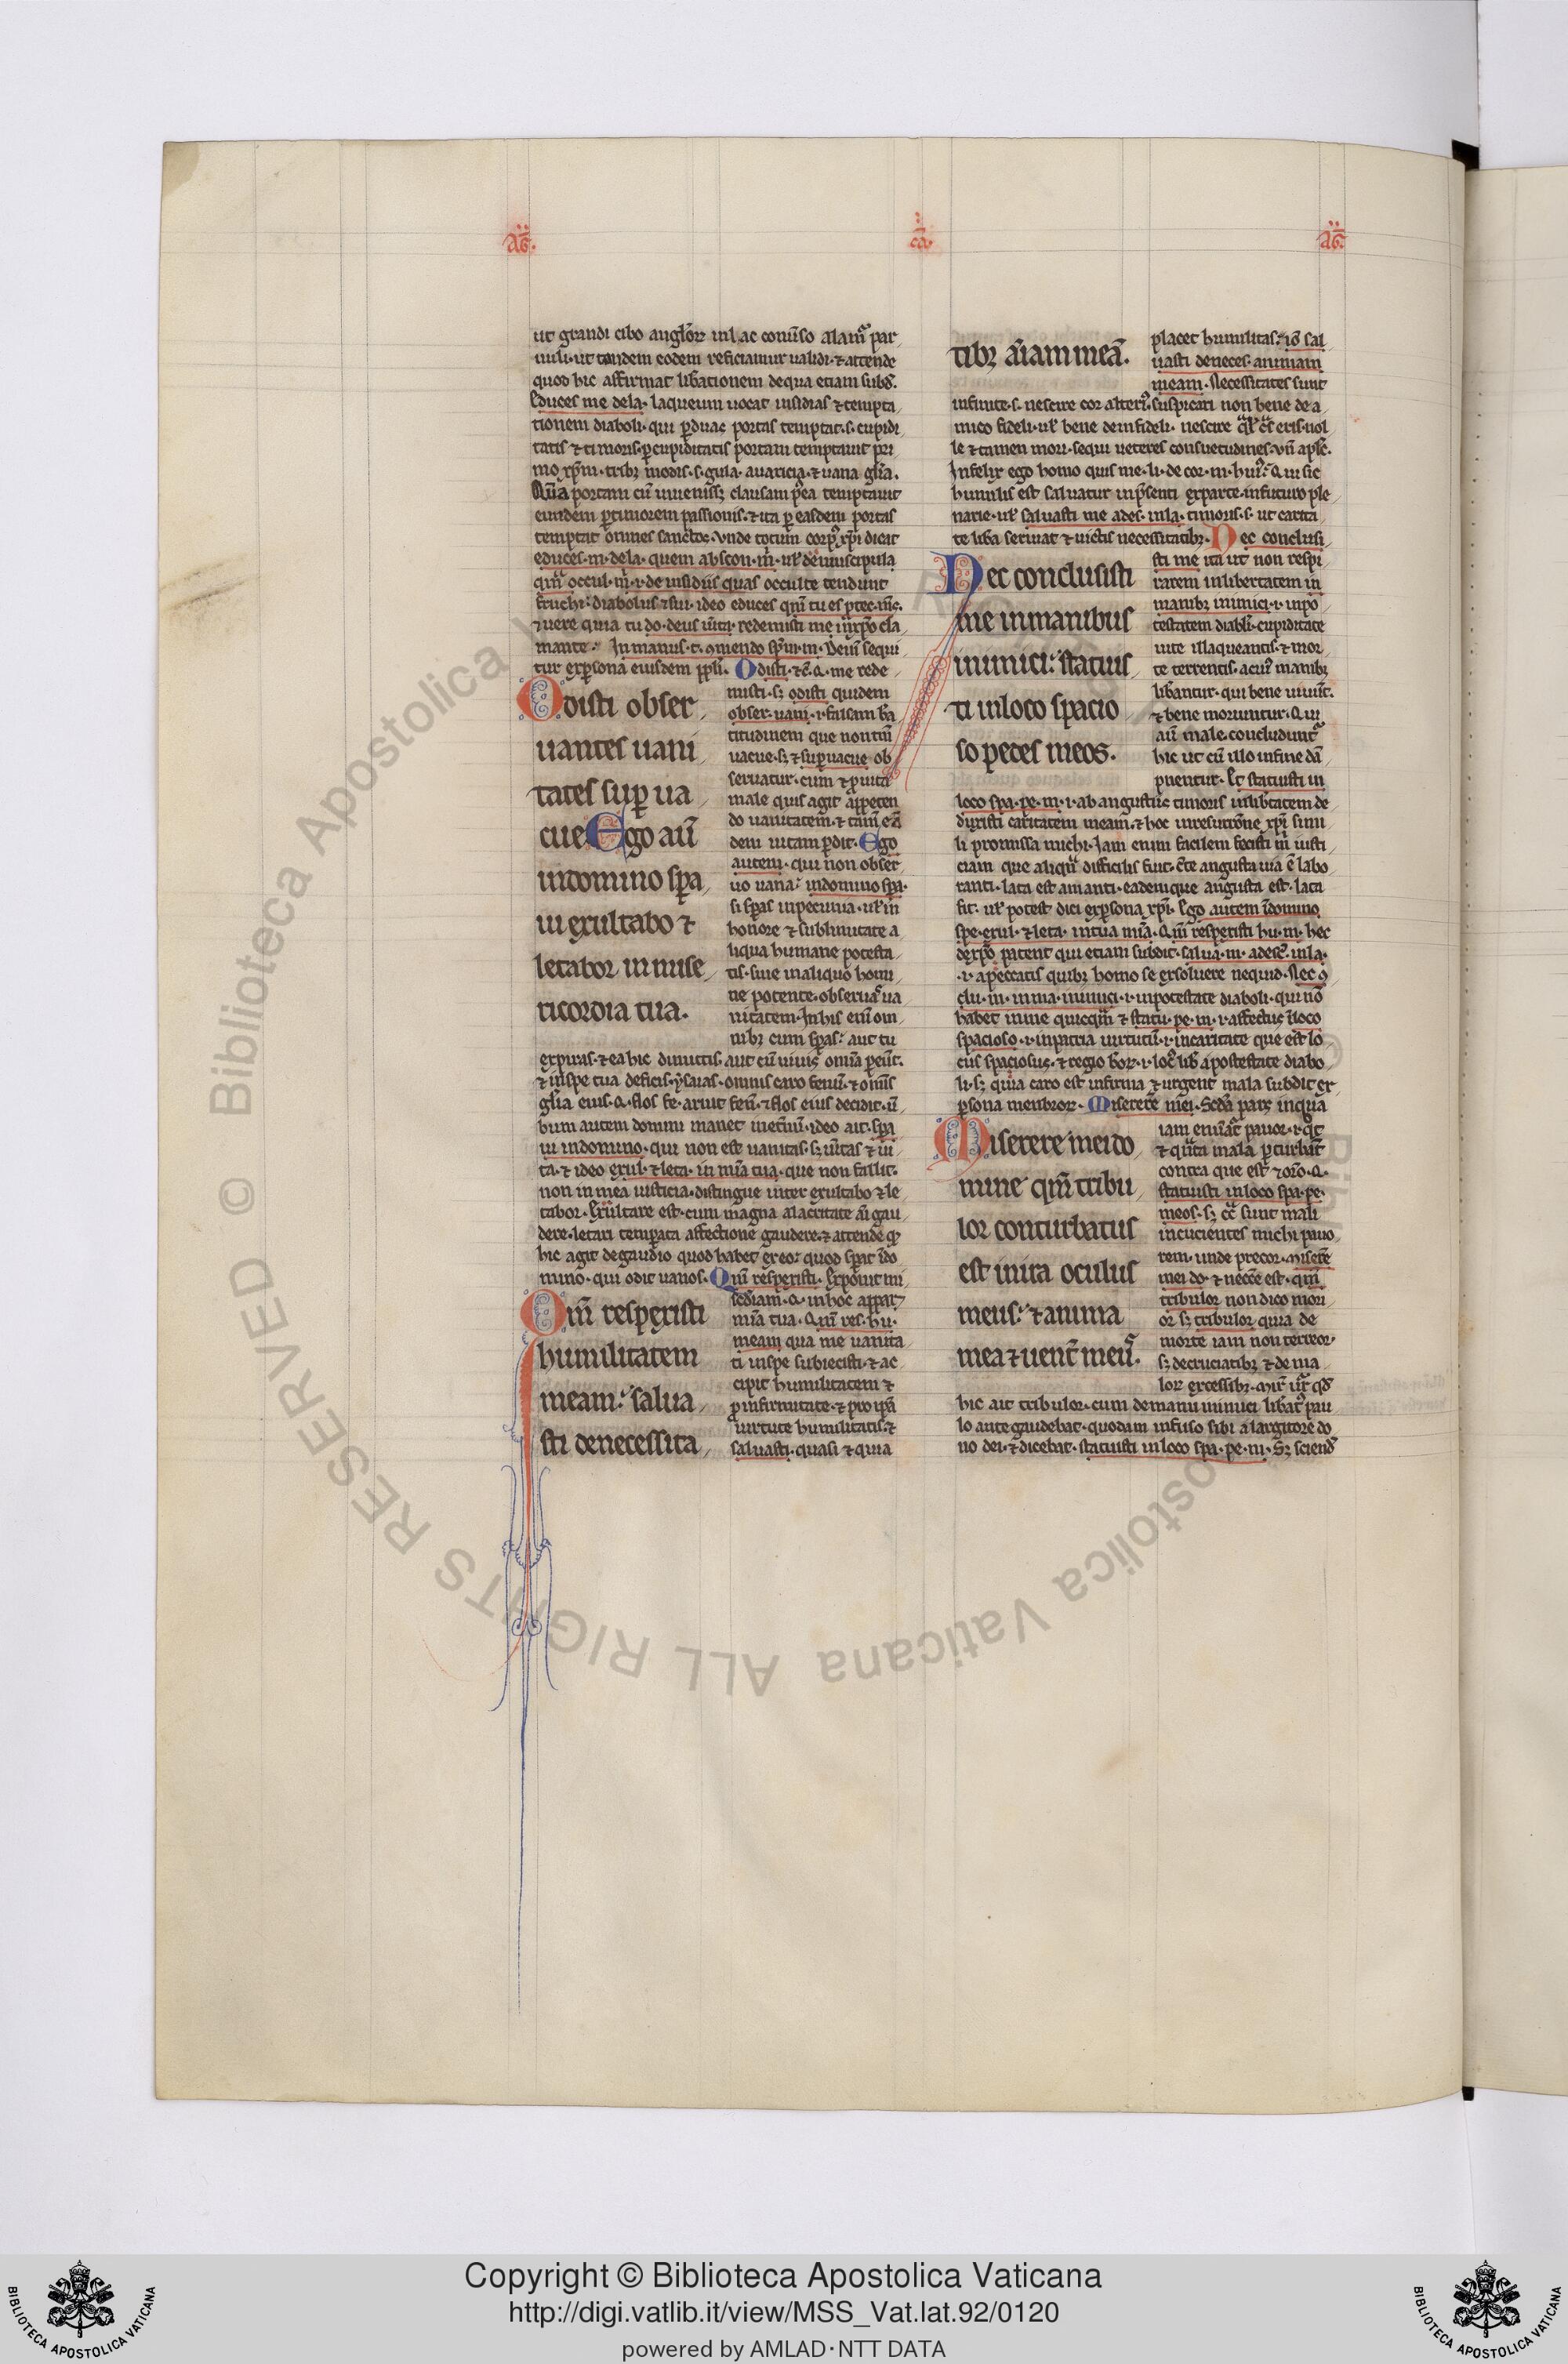 ut grandi cibo angl'orz in lac conuso alam' par
uuli. ut tandem eodem reficiamur ualidi. ⁊ attende
quod hic affirmat lib'ationem de qua etiam subd'.
Educes me de la. laqueum uocat insidias ⁊ tempta
tionem diaboli. qui ꝑ duas portas temptat. s. cupidi
tatis ⁊ timoris. ꝑ cupiditatis portam temptauit pri
mo xp̄m. tribꝫ modis. s. gula. auaricia. ⁊ uana gl̄ia.
portam cū inuenissꝫ clausam temptauit
eundem ꝑ timorem passionis. ⁊ ita ꝑ easdem portas
temptat omnes sanctos. Vnde totum corp' xp̄i dicit
educes. m. de la. quem abscon. m̄. ul' de muscipula
occul. m̄. i. de insidiis quas occulte tendunt
diabolus ⁊ sui. ideo educes qm̄ tu es ꝓtec. m̄s.
⁊ uere quia tu do. deus uīta. redemisti me xp̄o cla
mante. In manus. t. ꝯmendo sp̄m. m. Dein̄ sequi
tur ex ꝑsona eiusdem pp̄li. Odisti. ⁊c̄. q. me rede
Odisti obser
uantes uani
tates suꝑ ua
cue Ego aū
in domino spa
ui exultabo ⁊
letabor in mise
ricordia tua.
misti. sꝫ odisti quidem
obser. uani. i. falsam b̄a
titudinem que non tm̄
uacue. sꝫ ⁊ suꝑuacue ob
seruatur. cum ⁊ ꝓ uita
male quis agit appeten
do uanitatem. ⁊ tam̄ eā
dem uitam ꝑdit. Ego
autem. qui non obser
uo uana. in domino spa.
si sꝑas in pecunia. ul' in
honore ⁊ sublimitate a
liqua humane potesta
tis. siue in aliquo homi
ne potente. obseruas ua
nitatem. In his eni om
nibꝫ cum sꝑas: aut tu
expiras. ⁊ ea hic dimittis. aut cū uiuis omia ꝑeūt.
⁊ in spe tua deficis. ysaias. omnis caro fenū. ⁊ omis
gl̄ia eius. q. flos fe. aruit fenū. ⁊ flos eius decidit. ū
bum autem domini manet in et̄nū. ideo ait. spa
ui in domino. qui non est uanitas. sꝫ ūitas ⁊ ui
ta. ⁊ ideo exul. ⁊ leta. in mīa tua. que non fallit.
non in mea iusticia. distingue inter exultabo ⁊ le
tabor. Exultare est. cum magna alacritate ai gau
dere. letari temꝑata affectione gaudere. ⁊ attende ꝙ
hic agit de gaudio quod habet ex eo: quod sꝑat ī do
mino. qui odit uanos. Qm̄ respexisti. Exponit mi
Qm̄ respexisti
humilitatem
meam: salua
sti de necessita
sc̄diam. q. in hoc appar
mīa tua. Qm̄ res. hu.
meam qua me uanita
ti in spe subiecisti. ⁊ ac
cipit humilitatem ⁊
ꝓ infirmitate. ⁊ pro ipā
uirtute humilitatis. ⁊
saluasti. quasi ⁊ quia
tibꝫ aīam meā.
placet humilitas: iō sal
uasti de neces. animam
meam. Necessitates sunt
infinite. s. nescire cor alteri'. suspicari non bene de a
mico fideli. ul' bene de infideli. nescire eris. uol
le ⁊ tamen mori. sequi ueteres consuetudines. un̄ apl's.
Infelix ego homo quis me. li. de cor. m. hui'. Qui sic
humilis est saluatur in p̄senti ex parte. in futuro ple
narie. ul' saluasti me a des. in la. timoris. s. ut carita
te lib'a seruiat ⁊ uictis necessitatibꝫ. Nec conclusi
Nec conclusisti
me in manibus
inimici: statuis
ti in loco spacio
so pedes meos.
sti me ita ut non respi
rarem in libertatem in
manibꝫ inimici. i. in po
testatem diabli. cupiditate
uite illaqueantis. ⁊ mor
te terrentis. a cui' manibꝫ
lib'antur. qui bene uiuūt.
⁊ bene moriuntur. Qui
aū male. concludunt'
hic ut cū illo in fine dā
pnentur. Et statuisti in
loco spa. pe. m. i. ab angustiis timoris in lib'tatem de
duxisti caritatem meam. ⁊ hoc in resurr̄one xp̄i simi
li promissa michi. Iam enim facilem fecisti m̄ iusti
ciam que aliqn̄ difficilis fuit. c̄te angusta uia ē labo
ranti. lata est amanti. eademque angusta est. lata
fit. ul' potest dici ex ꝑsona xp̄i. Ego autem ī domino
spe. exul. ⁊ leta. in tua mīa. Qm̄ respexisti hu. m. hec
de xp̄o patent qui etiam subdit. salua. m. a des'. in la.
.i. a peccatis quibꝫ homo se exsoluere nequid. Nec ꝯ
clu. m. in ma. inimici. i. in potestate diaboli. qui nō
habet in me quicqm̄ ⁊ statu. pe. m. i. affectus ī loco
spacioso. i. in patria uirtutū. i. in caritate que est lo
cus spaciosus. ⁊ regio b'orz. i. loc' lib' a potestate diabo
li. sꝫ quia caro est infirma ⁊ urgent mala subdit ex
ꝑsona menbrorz. Miserere mei. Scd̄a pars in qua
Miserere mei do
mine qm̄ tribu
lor conturbatus
est in ira oculus
meus: ⁊ anima
mea ⁊ uent' meu'.
iam enūat' pauor.
⁊ mala ꝑturbāt'
contra que est ⁊ orō. q.
statuisti in loco spa. pe.
meos. sꝫ ecc̄ sunt mali
incucientes michi pauo
rem. unde precor. Miserere
mei do. ⁊ necc̄e est. qm̄
tribulor non dico mori
or sꝫ tribulor quia de
morte iam non terreor.
sꝫ de cruciatibꝫ ⁊ de ma
lorz excessibꝫ.
hic ait tribulor. cum de manu inimici lib'at' pau
lo ante gaudebat. quodam infuso sibi a largitore do
no dei. ⁊ dicebat. statuisti in loco spa. pe. m. Sꝫ sciend'
Copyright © Biblioteca Apostolica Vaticana
http://digi.vatlib.it/view/MSS_Vat.lat.92/0120
powered by AMLAD·NTT DATA
BIBLIOTECA APOSTOLICA VATICANA
BIBLIOTECA APOSTOLICA VATICANA
© Biblioteca Apostolica Vaticana ALL RIGHTS RESERVED